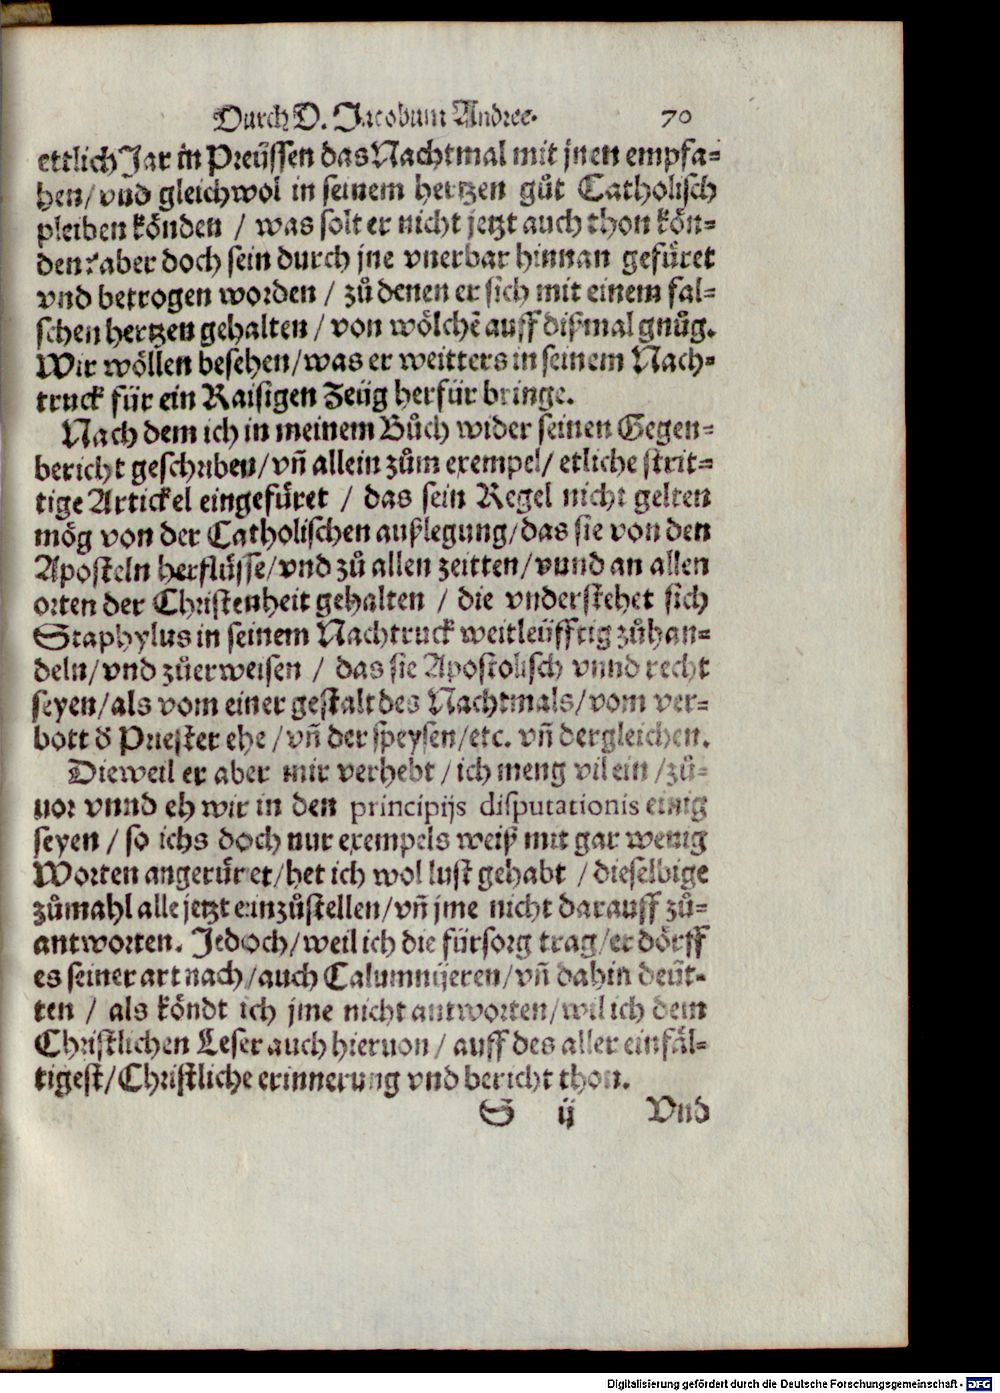 Durch D. Jacobum Andree. 70
ettlich Jar in Preüssen das Nachtmal mit jnen empfa=
hen/ vnd gleichwol in seinem hertzen gůt Catholisch
pleiben könden / was solt er nicht jetzt auch thon kön=
den? aber doch sein durch jne vnerbar hinnan gefüret
vnd betrogen worden / zů denen er sich mit einem fal=
schen hertzen gehalten / von wölchē auff dißmal gnůg.
Wir wöllen besehen/ was er weitters in seinem Nach=
truck für ein Raisigen Zeüg herfür bringe.
Nach dem ich in meinem Bůch wider seinen Gegen=
bericht geschriben/ vñ allein zům exempel/ etliche strit=
tige Artickel eingefüret / das sein Regel nicht gelten
mög von der Catholischen außlegung/ das sie von den
Aposteln herflüsse/ vnd zů allen zeitten/ vnnd an allen
orten der Christenheit gehalten / die vnderstehet sich
Staphylus in seinem Nachtruck weitleüfftig zůhan=
deln/ vnd zůerweisen / das sie Apostolisch vnnd recht
seyen/ als vom einer gestalt des Nachtmals/ vom ver=
bott d̕ Priester ehe / vñ der speysen/ etc. vñ dergleichen.
Dieweil er aber mir verhebt / ich meng vil ein / zů=
uor vnnd eh wir in den principijs disputationis einig
seyen / so ichs doch nur exempels weiß mit gar wenig
Worten angerüret/ het ich wol lust gehabt / dieselbige
zůmahl alle jetzt einzůstellen/ vñ jme nicht darauff zů=
antworten. Jedoch/ weil ich die fürsorg trag/ er dörff
es seiner art nach/ auch Calumnijeren/ vñ dahin deüt=
ten / als köndt ich jme nicht antworten/ wil ich dem
Christlichen Leser auch hieruon / auff des aller einfäl=
tigest/ Christliche erinnerung vnd bericht thon.
S ij Vnd
Digitalisierung gefördert durch die Deutsche Forschungsgemeinschaft - DFG